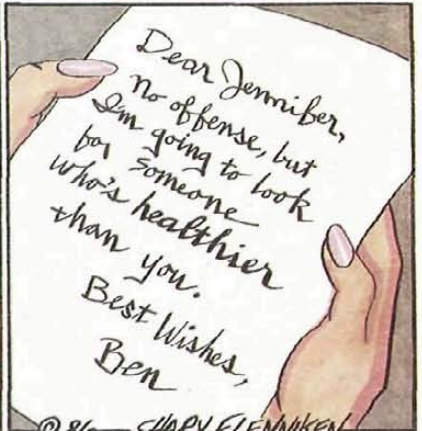 Dear Jennifer,
No offense, but
I'm going to look
for someone
who's healthier
than you.
Best Wishes,
Ben
© 86 SHARY FLENNIKEN